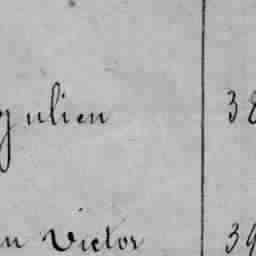 Julien 38
n Victor 39